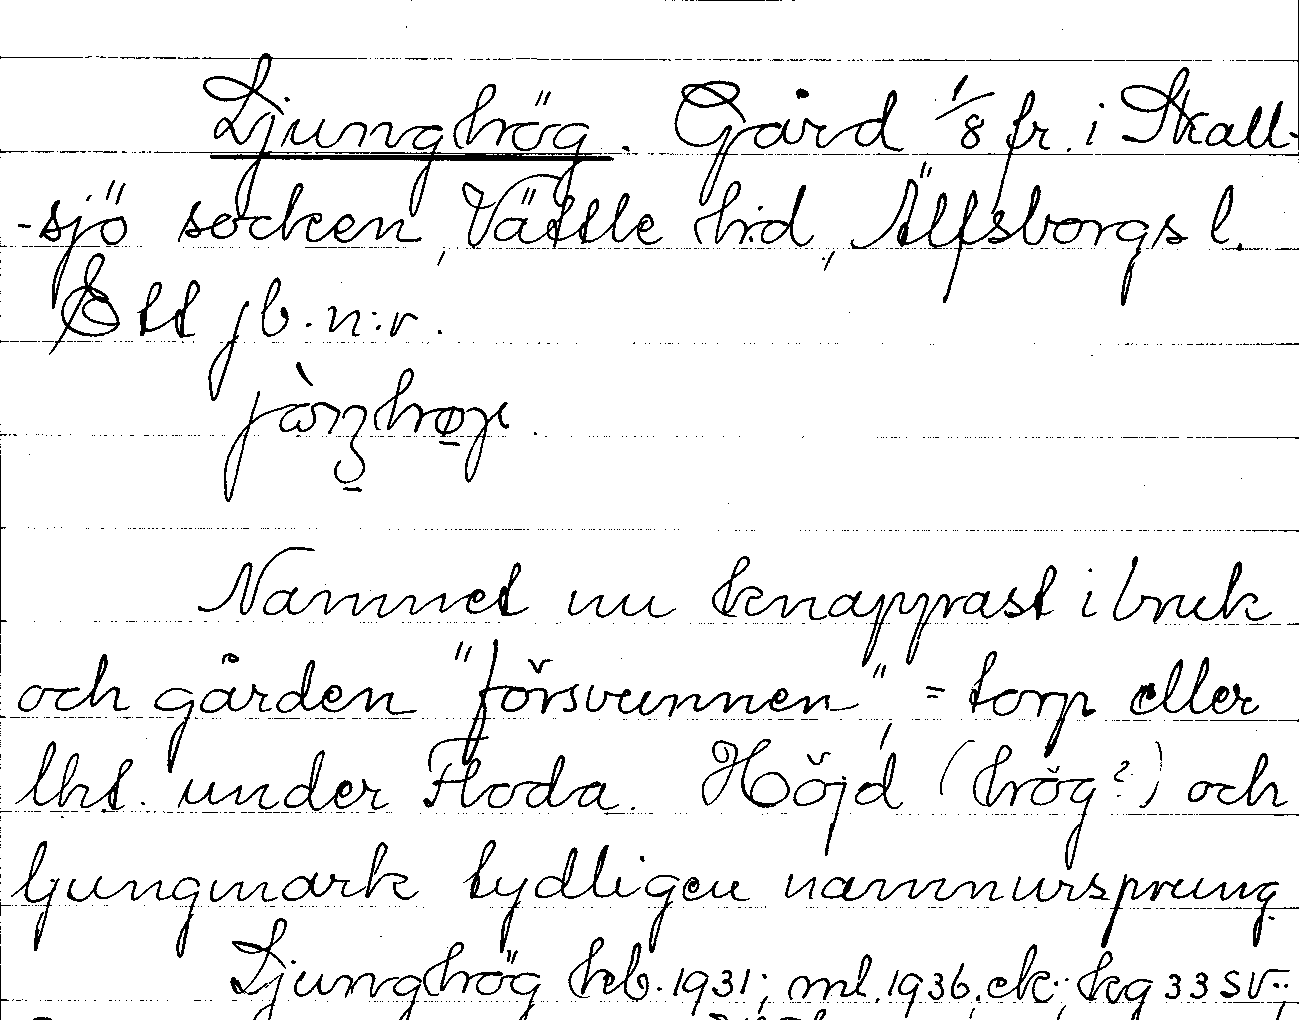 Ljunghög. Gård 1/8 fr. i Skall-
-sjö socken, Vättle h:d, Älfsborgs l.
Ett jb. n:r.
Namnet nu knappast i bruk
och gården "försvunnen", = torp eller
lht. under Floda. Höjd (hög?) och
ljungmark tydligen namnursprung.
Ljunghög hb. 1931; ml. 1936, ek.; kg 33 SV.;